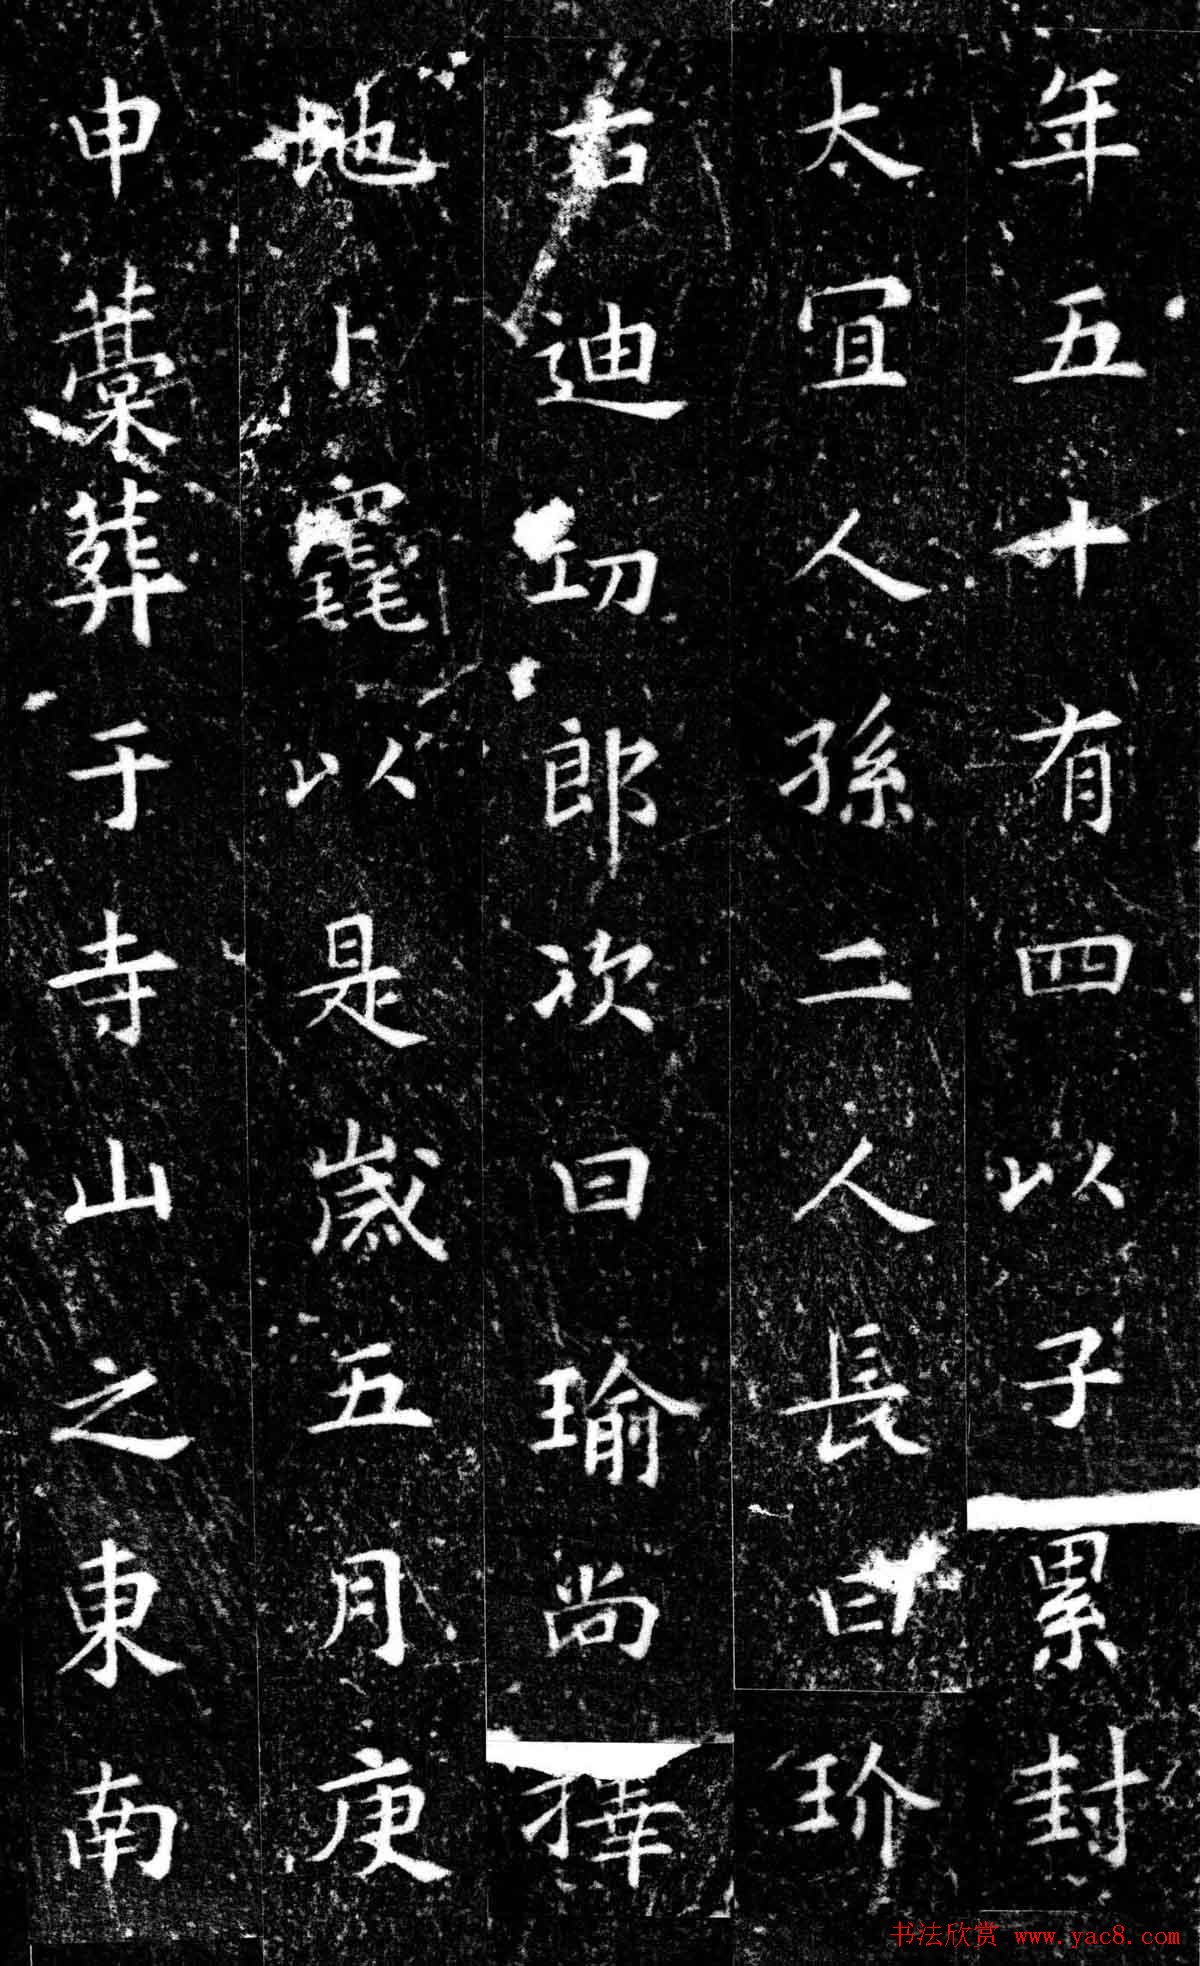 年五十有四以子累封
太宜人孫二人長曰玠
右迪㓛郎次曰瑜尚
地卜竁以是歲五月庚
申藁葬于寺山之東南
书法欣赏 www.yac8.com